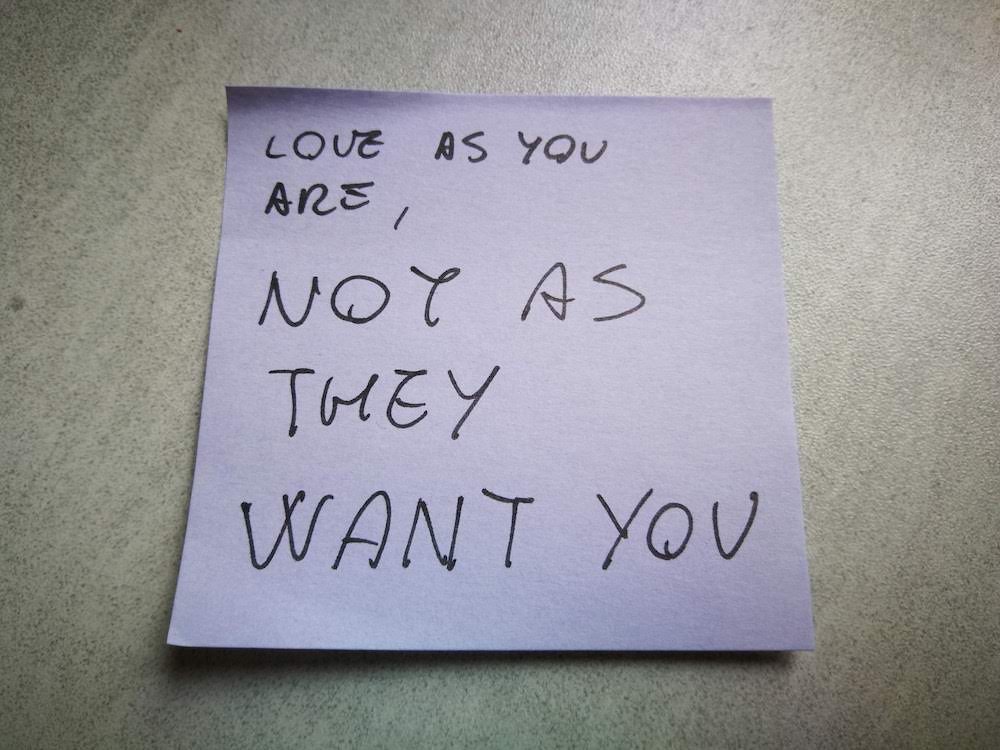 LOVE AS YOU
ARE,
NOT AS
THEY
WANT YOU